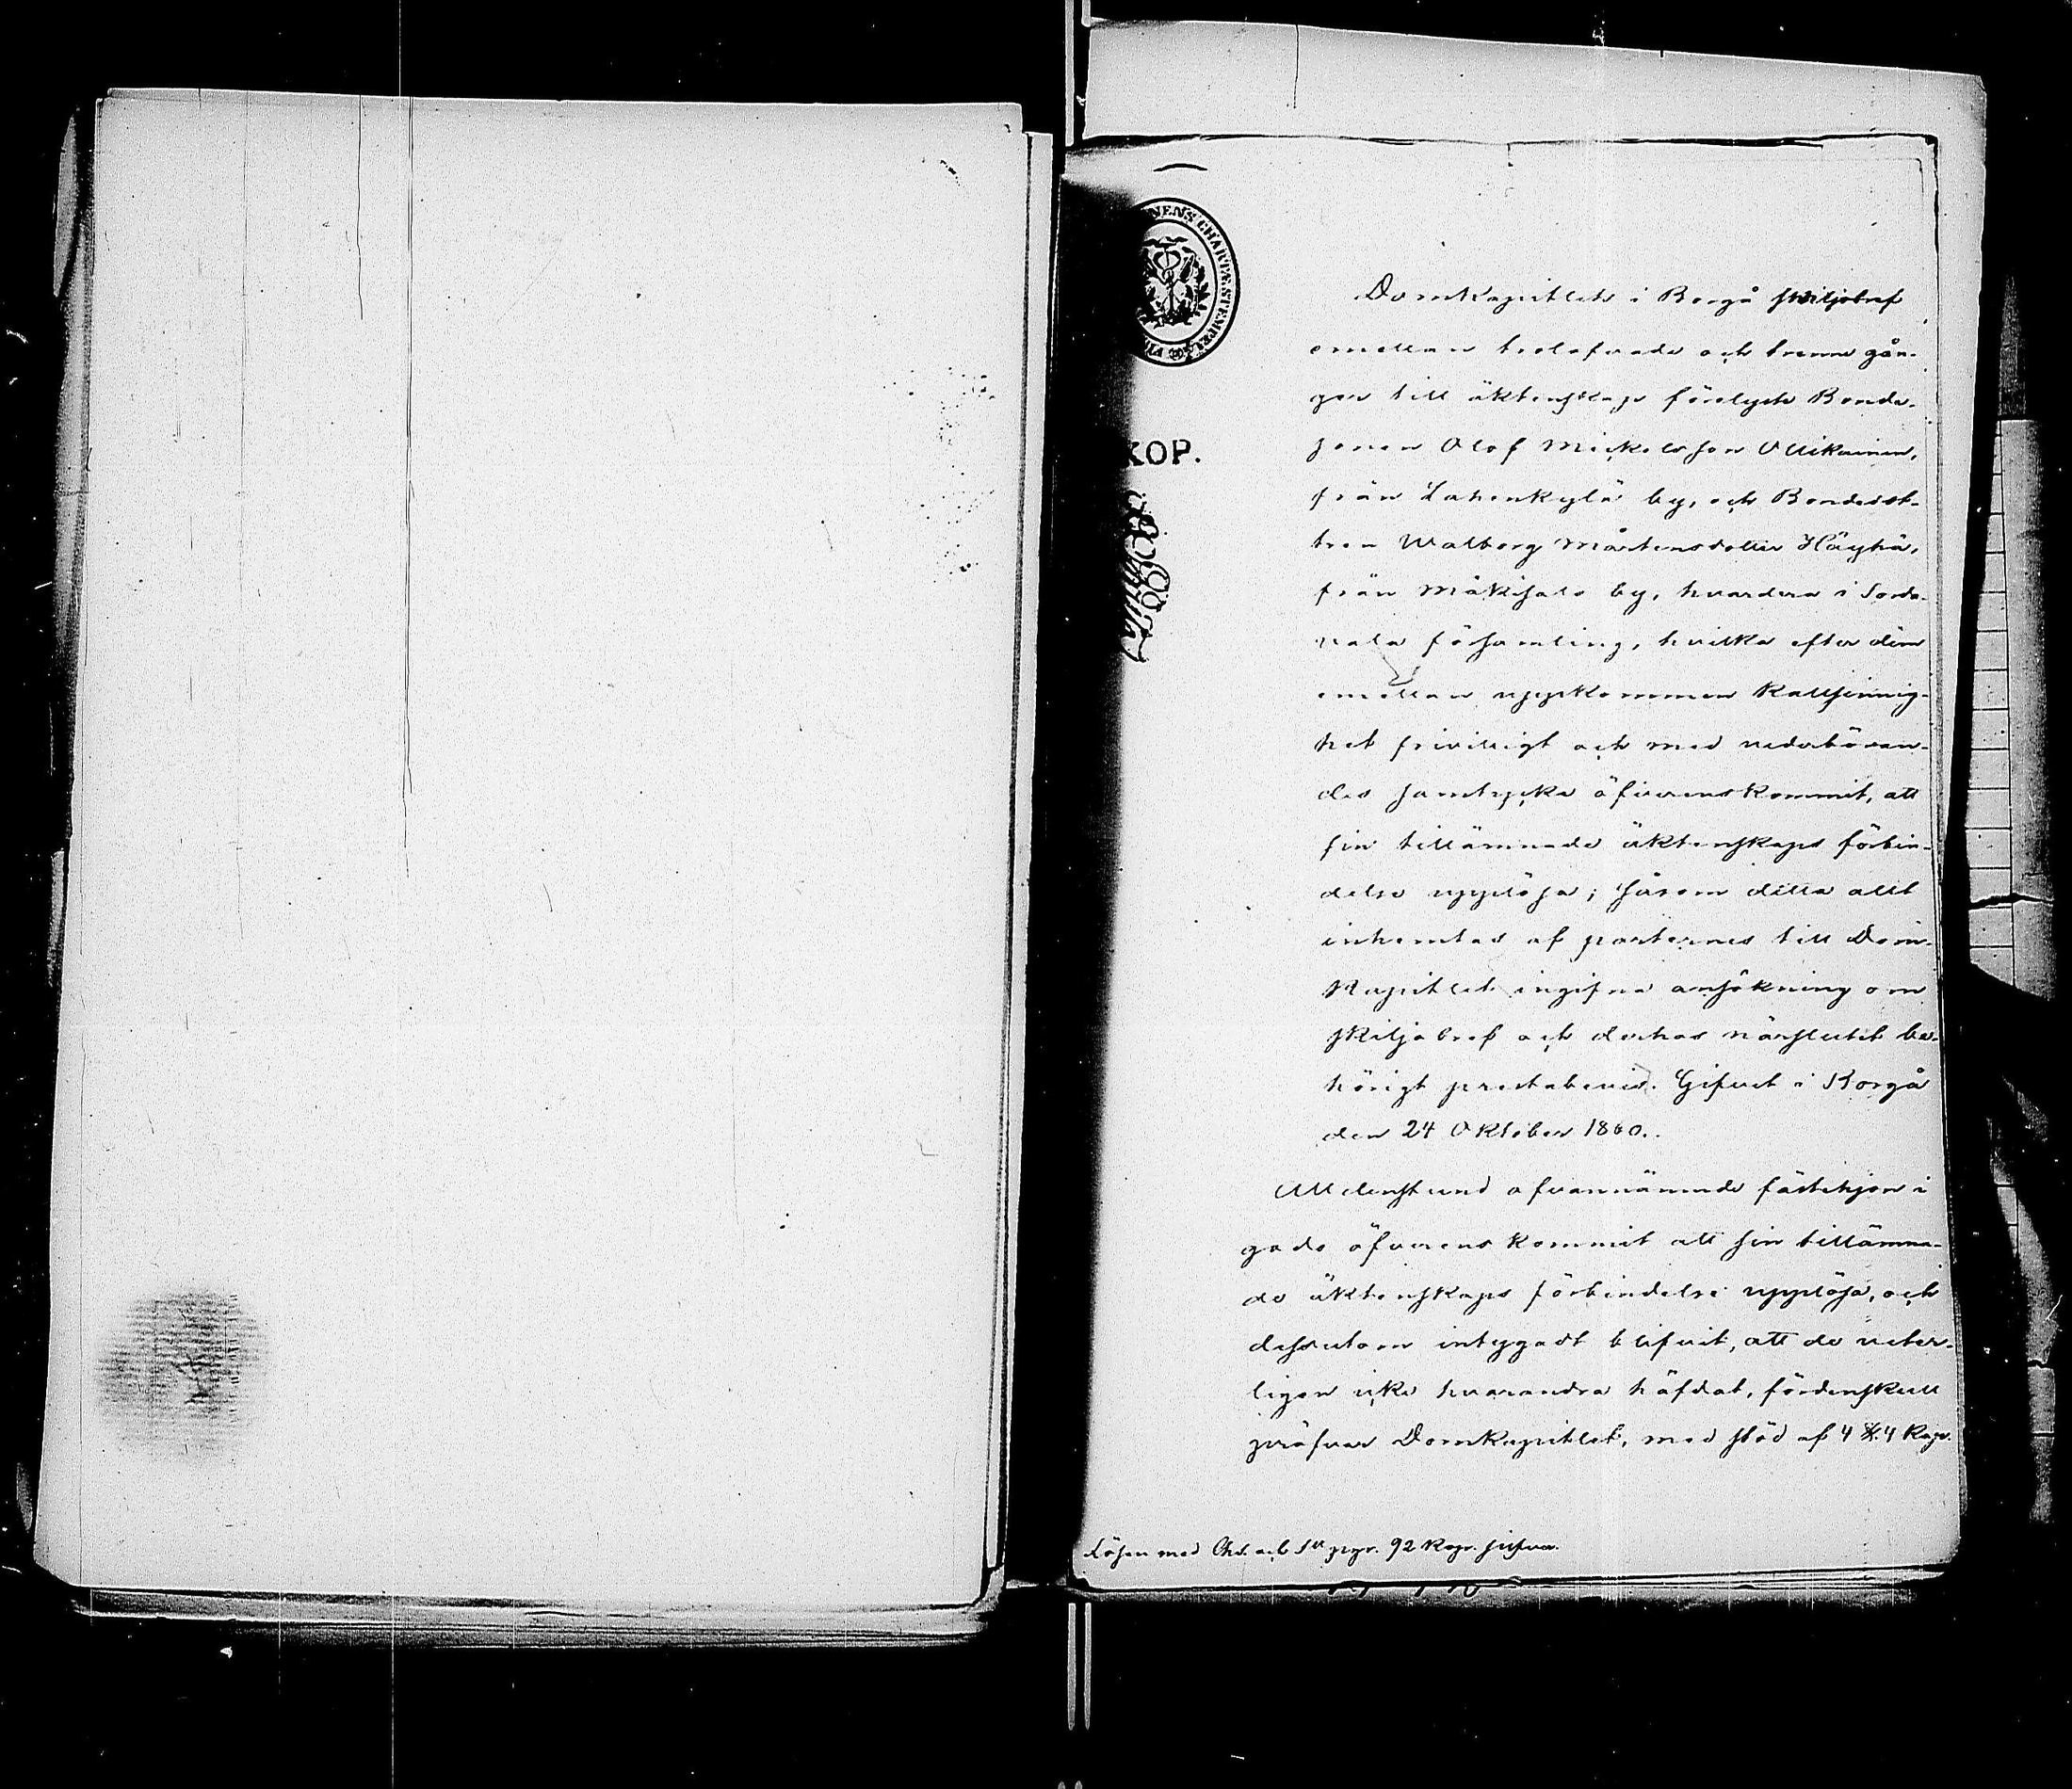 NENS CHARTÆ STEMPEL
KOP.
Domkapitlets i Borgå skiljobref
emellan trolofvade och trenne gån-
ger till äktenskap förelyste Bonde-
sonen Olof Mickelsson Ollikainen,
från Lahenkylä by, och Bondedot-
tren Walborg Mårtensdotter Häyhä,
från Mäkisalo by, hvardera i Sorda-
vala församling, hvilka efter dem
emellan uppkommen kallsinnig-
het frivilligt och med vederböran-
des samtycke öfverenskommit, att
sin tillämnade äktenskaps förbin-
delse upplösa; såsom detta allt
inhemtas af parternes till Dom-
kapitlet ingifne ansökning om
skiljobref och derhos närslutet be-
hörigt prestabevis. Gifvet i Borgå
den 24 Oktober 1860.
Alldenstund ofvannämnde fästehjon i
godo öfverenskommit att sin tillämna-
de äktenskaps förbindelse upplösa, och
dessutom intygadt blifvit, att de veter-
ligen icke hvarandra häfdat, fördenskull
pröfvar Domkapitlet, med stöd af 4 §. 4 Kap.
Lösen med Ch. och St. ppr. 92 Kop. silfver.